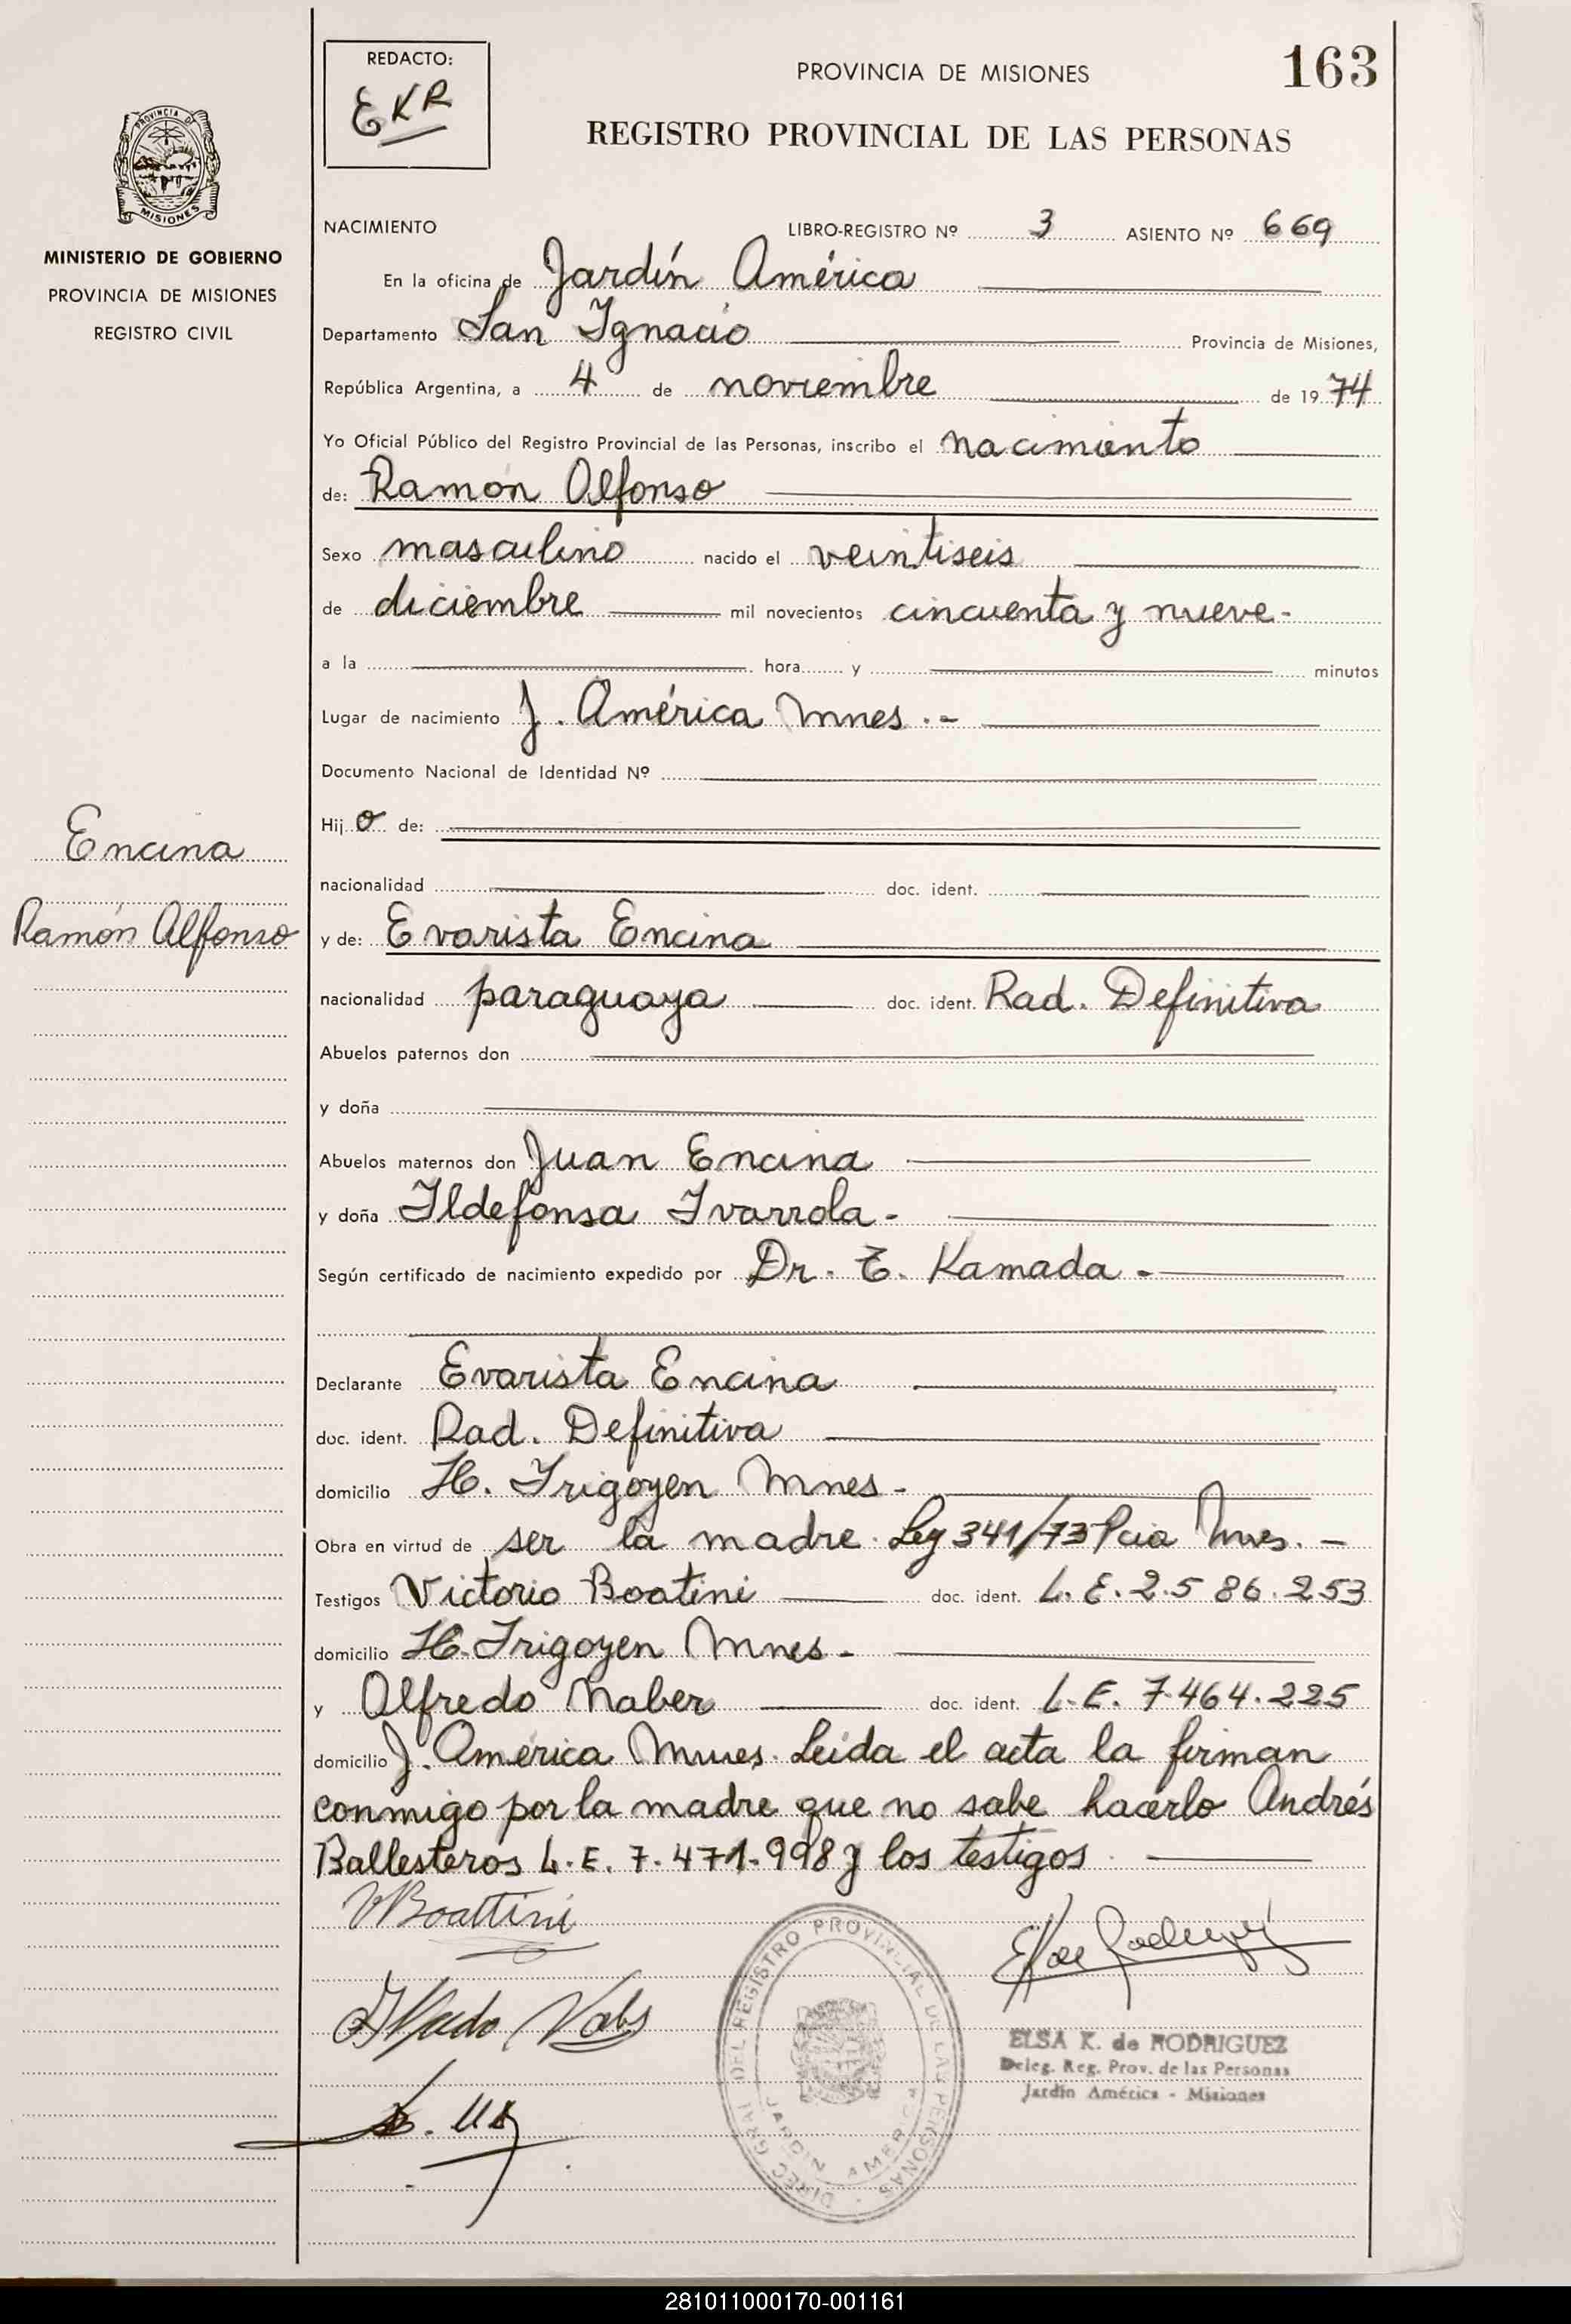 REDACTO:
EKR
PROVINCIA DE MISIONES
163
REGISTRO PROVINCIAL DE LAS PERSONAS
PROVINCIA DE
MISIONES
MINISTERIO DE GOBIERNO
PROVINCIA DE MISIONES
REGISTRO CIVIL
NACIMIENTO LIBRO-REGISTRO Nº 3 ASIENTO Nº 669
En la oficina de Jardín América
Departamento San Ignacio Provincia de Misiones,
República Argentina, a 4 de noviembre de 1974
Yo Oficial Público del Registro Provincial de las Personas, inscribo el nacimiento
de: Ramón Alfonso
Sexo masculino nacido el veintiseis
de diciembre mil novecientos cincuenta y nueve-
a la hora y minutos
Lugar de nacimiento J. América Mnes.-
Documento Nacional de Identidad Nº
Hijo de:
nacionalidad doc. ident.
Encina
Ramón Alfonso
y de: Evarista Encina
nacionalidad paraguaya doc. ident. Rad. Definitiva
Abuelos paternos don
y doña
Abuelos maternos don Juan Encina
y doña Ildefonsa Ivarrola-
Según certificado de nacimiento expedido por Dr. T. Kamada-
Declarante Evarista Encina
doc. ident. Rad. Definitiva
domicilio H. Irigoyen Mnes-
Obra en virtud de ser la madre. Ley 341/73 Pcia Mnes.-
Testigos Victorio Boatini doc. ident. L.E. 2.586.253
domicilio H. Irigoyen Mnes-
y Alfredo Naber doc. ident. L.E. 7.464.225
domicilio J. América Mnes. Leída el acta la firman
conmigo por la madre que no sabe hacerlo Andrés
Ballesteros L.E. 7.471.998 y los testigos.
VBoattini
DIREC. GRAL. DEL REGISTRO PROVINCIAL DE LAS PERSONAS
JARDIN AMERICA
ELSA K. de RODRIGUEZ
Deleg. Reg. Prov. de las Personas
Jardín América - Misiones
281011000170-001161